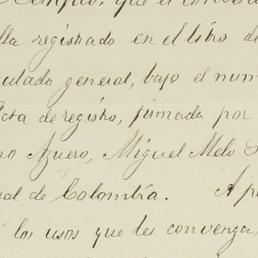 que el
lla registrado en el libro de
culada general, bajo el num
cta de registro, firmada por
ro Azuero, Miguel Melo
ral de Colombia. A pe
i los usos que les convenga,